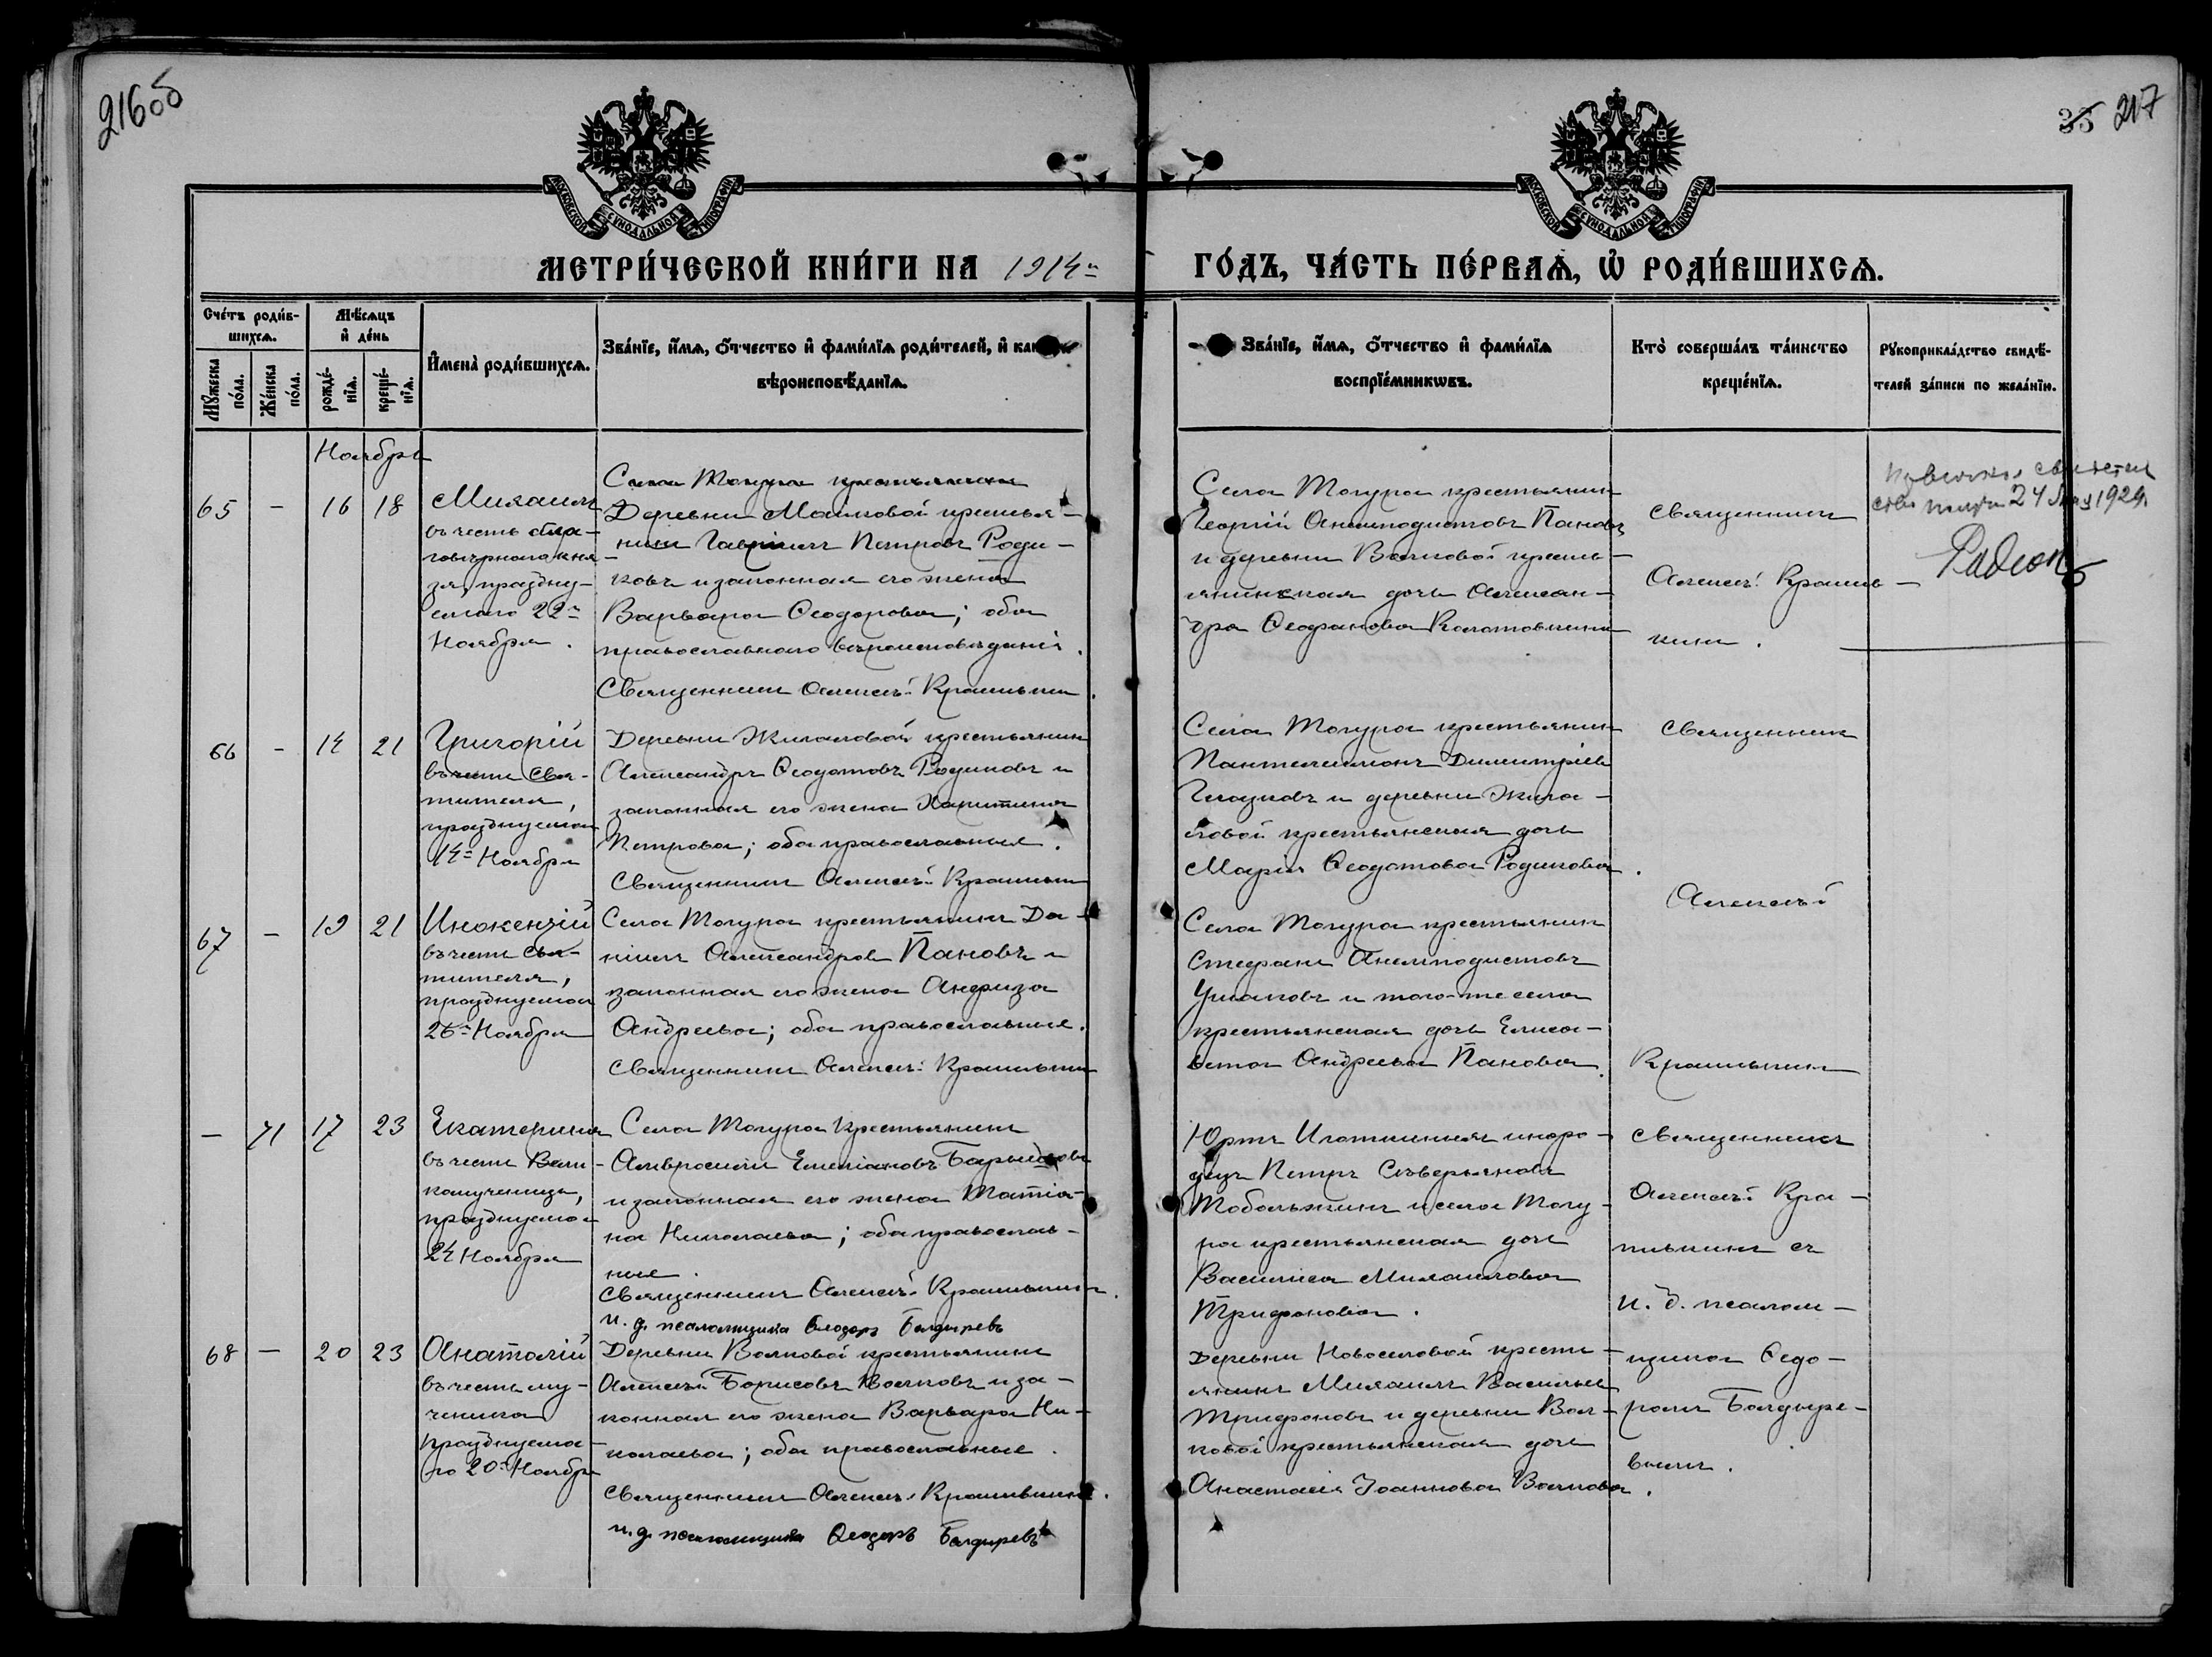 216об
35 217
МОСКОВСКОЙ СѴНОДАЛЬНОЙ ТИПОГРАФІИ
МОСКОВСКОЙ СѴНОДАЛЬНОЙ ТИПОГРАФІИ
МЕТРИ́ЧЕСКОЙ КНИ́ГИ НА 1914й
ГО́ДЪ, ЧА́СТЬ ПЕ́РВАѦ, Ѡ҆ РОДИ́ВШИХСѦ.
Сче́тъ роди́в-
шихсѧ.
Мѣ́сѧцъ
и҆ де́нь
Мꙋ́жеска
по́ла.
Же́нска
по́ла.
рожде́-
нїѧ.
креще́-
нїѧ.
И҆мена̀ роди́вшихсѧ.
Зва́нїе, и҆́мѧ, ѻ҆́тчество и҆ фами́лїѧ роди́телей, и҆
вѣроисповѣ́данїѧ.
Зва́нїе, и҆́мѧ, ѻ҆́тчество и҆ фами́лїѧ
воспрїе́мникѡвъ.
Кто̀ соверша́лъ та́инство
креще́нїѧ.
Рꙋкоприкла́дство свидѣ́-
телей за́писи по жела́нїю.
Ноября
65 - 16 18
Михаилъ
въ честь благо-
говѣрнаго кня-
зя, праздну-
емаго 22го
Ноября.
Села Тогура крестьянинъ
Деревни Маиковой крестья-
нинъ Гавріилъ Петровъ Роди-
ковъ и законная его жена
Варвара Ѳеодорова; оба
православнаго вѣроисповѣданія.
Священникъ Алексѣй Крапивкинъ.
Села Тогура крестьянинъ
Георгій Анемподистовъ Пановъ
и деревни Волковой кресть-
янинская дочь Алексан-
дра Ѳеофанова Колотовкина
Священникъ
Алексѣй Крапив-
кинъ.
24 1929.
66 - 14 21
Григорій
въ честь Свя-
тителя,
празднуемаго
14го Ноября
Деревни Жигаловой крестьянинъ
Александръ Ѳеодотовъ Родиковъ и
законная его жена Харитина
Петрова; оба православные.
Священникъ Алексѣй Крапивкинъ
Села Тогура крестьянинъ
Пантелеимонъ Димитріевъ
Глазковъ и деревни Жига-
ловой крестьянская дочь
Марія Ѳеодотова Родикова.
Священникъ
67 - 19 21
Инокентій
въ честь Свя-
тителя,
празднуемаго
26го Ноября
Села Тогура крестьянинъ Да-
ніилъ Александровъ Пановъ и
законная его жена Анфиза
Андреева; оба православные.
Священникъ Алексѣй Крапивкинъ
Села Тогура крестьянинъ
Стефанъ Анемподистовъ
Ушаковъ и того-же села
крестьянская дочь Елиса-
вета Андреева Панова.
Алексѣй
Крапивкинъ
- 71 17 23
Екатерина
въ честь Вели-
комученицы,
празднуемой
24 Ноября
Села Тогура Крестьянинъ
Амвросій Емеліановъ
и законная его жена Татіа-
на Николаева; оба православ-
ные.
Священникъ Алексѣй Крапивкинъ.
и. д. псаломщика Ѳеодоръ Болдыревъ
Юртъ Иготкиныхъ иноро-
децъ Петръ Северьяновъ
Тобольжинъ и села Тогу-
ра крестьянская дочь
Василиса Михаилова
Трифонова.
Священникъ
Алексѣй Кра-
пивкинъ съ
и. д. псалом-
щика Ѳедо-
ромъ Болдыре-
вымъ.
68 - 20 23
Анатолій
въ честь му-
ченика
празднуема-
го 20го Ноября
Деревни Волковой крестьянинъ
Алексѣй Борисовъ Волковъ и за-
конная его жена Варвара Ни-
колаева; оба православные.
Священникъ Алексѣй Крапивкинъ.
и. д. псаломщика Ѳеодоръ Болдыревъ
Деревни Новоселовой кресть-
янинъ Михаилъ Васильевъ
Трифоновъ и деревни Вол-
ковой крестьянская дочь
Анастасія Іоаннова Волкова.